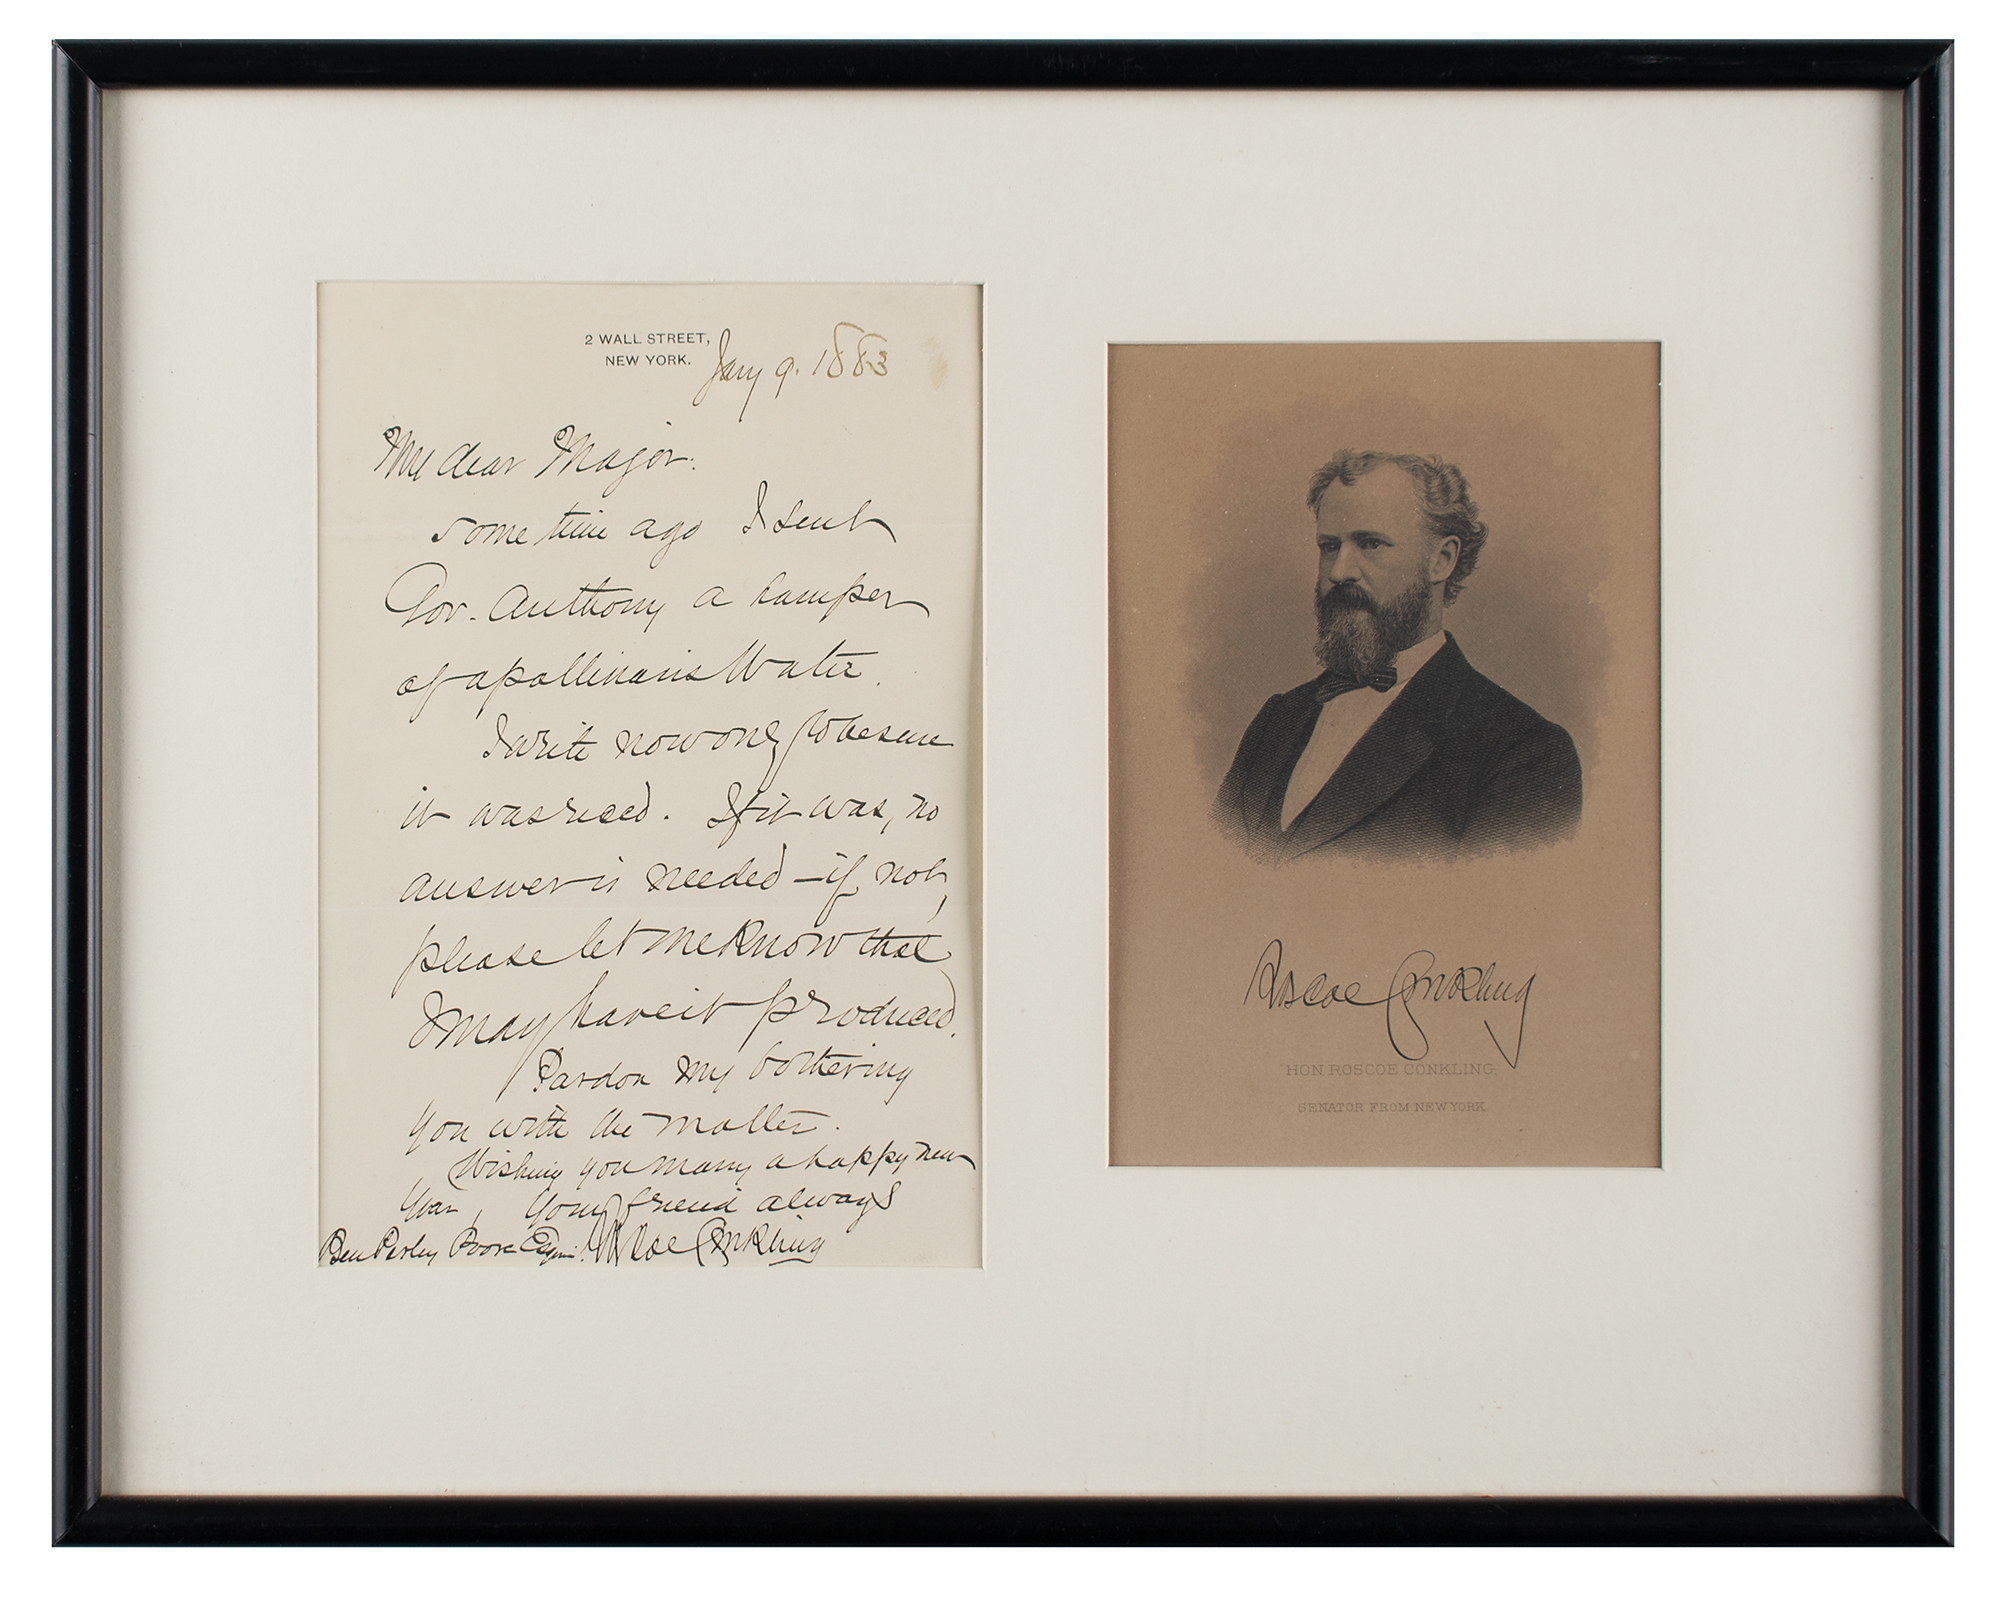 2 WALL STREET,
NEW YORK.
Jany 9. 1883
My dear Major:
some time ago I sent
Gov. Anthony a hamper
of apollinaris Water.
I write now only to be sure
it was recd. If it was, no
answer is needed – if not,
please let me know that
I may have it produced.
Pardon my bothering
you with the matter.
Wishing you many a happy new
Year, Your friend always
Ben Perley Poore Esqr. Roscoe Conkling
Roscoe Conkling
HON ROSCOE CONKLING.
SENATOR FROM NEW YORK.